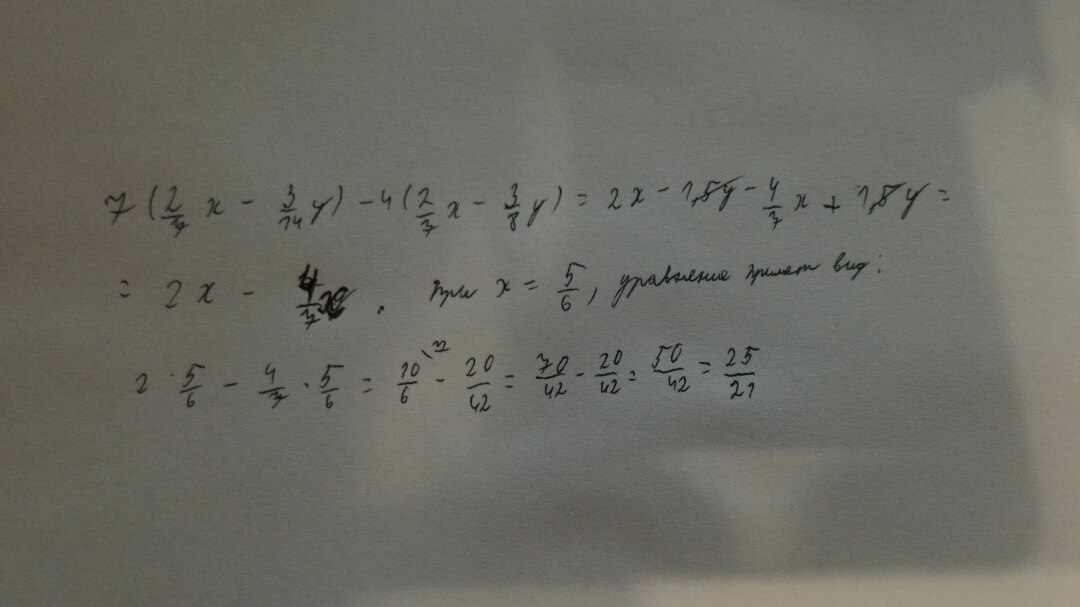 7 (2/7 x - 3/14 y) - 4 (2/7 x - 3/8 y) = 2x - 1,5y - 4/7 x + 1,5y =
= 2x - 4/7 x . При x = 5/6, уравнение примет вид:
2 · 5/6 - 4/7 · 5/6 = 10/6 \7 - 20/42 = 70/42 - 20/42 = 50/42 = 25/21